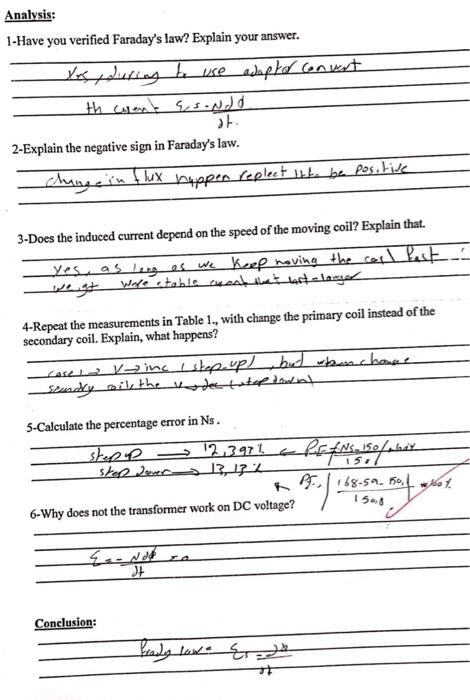 Analysis:
1-Have you verified Faraday's law? Explain your answer.
Yes, during to use adaptor convert
th current Ɛ = -Ndφ
dt.
2-Explain the negative sign in Faraday's law.
change in flux happen replect it to be positive
3-Does the induced current depend on the speed of the moving coil? Explain that.
Yes, as long as we keep moving the coil fast
we get more stable current that last longer
4-Repeat the measurements in Table 1., with change the primary coil instead of the
secondary coil. Explain, what happens?
case 1 → V→inc (step up), but when change
secondry coil the V→dec (step down)
5-Calculate the percentage error in Ns .
step up → 12,397% ← P.E
Ns-150
150
step down → 13,13%
168.59- 150
150
6-Why does not the transformer work on DC voltage?
Ɛ = - Ndφ
dt
Conclusion:
law =